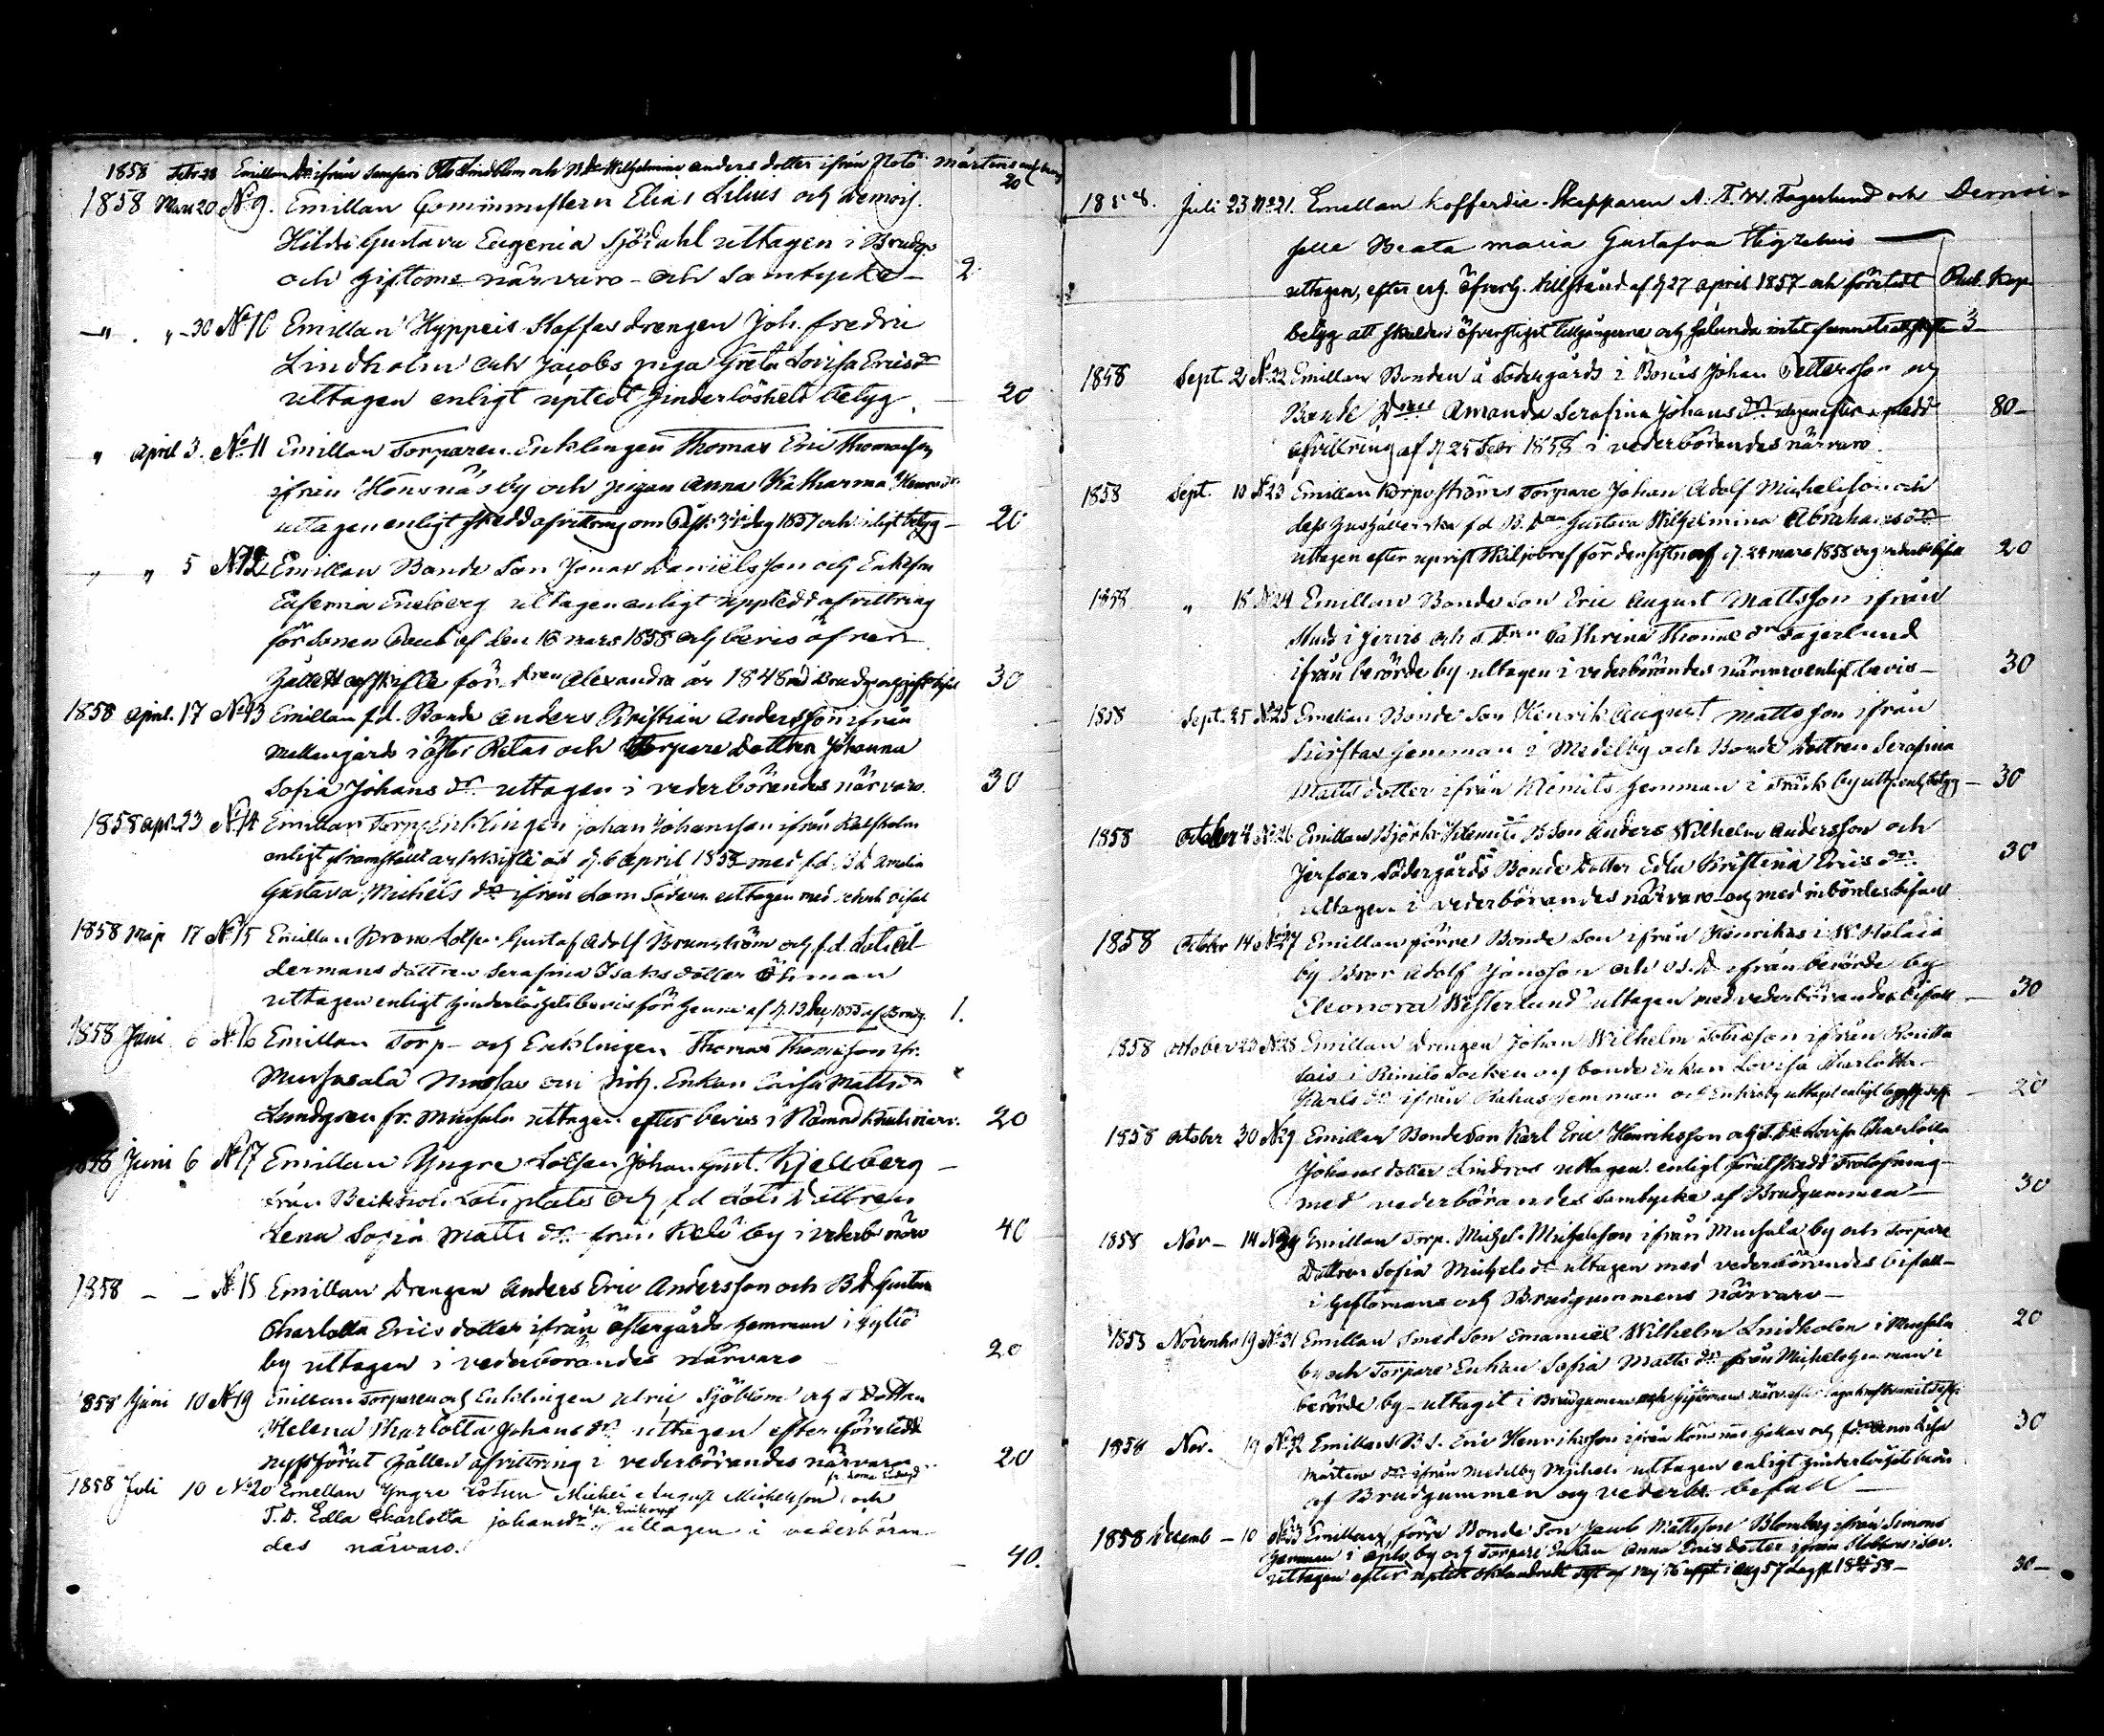 1858 Febr. 28 Emillan Dr. ifrån Otto Lindblom och B.dr Wilhelmina Anders dotter ifrån Nötö Mårtens
20
1858 Mars 20 No 9. Emillan Comministern Elias Lilius och Demois.
Hilda Gustava Eugenia Sjödahl uttagen i Brudg.
och giftome närvaro och samtycke — 2
—„— „ —30 No 10 Emillan Hyppeis Staffas drengen Joh. Fredric
Lindholm och Jacobs piga Greta Lovisa Ericsdr
uttagen enligt uptedt hinderlöshets betyg. — 20
„ April 3. No 11 Emillan Torparen Enklingen Thomas Eric Thomasson
ifrån Hönsnäs by och pigan Anna Katharina
uttagen enligt skedd afvittring om 1857 och enligt betyg — 20
„ „ 5 No 12 Emillan Bonde Son Jonas Danielsson och Enkefru
Eufemia Eneberg uttagen enligt uppledd afvittring
för sonen Paul af den 16 mars 1858 och bevis öfver
hållett arfskifte för dren Alexandra år 1848 30
1858 April. 17 No 13 Emillan f.d. Bonde Anders Kristian Andersson ifrån
Mellangårds i Öster Retas och Torpare Dottren Johanna
Sofia Johans dr uttagen i vederbörandes närvaro. 30
1858 apr. 23 No 14 Emillan Torp. Enklingen Johan Johansson ifrån Kalfholm
enligt framstäldt arfskifte af d. 6 April 1858 med f.d. B.d. Amalia
Gustava Michels dr ifrån Lom Södera uttagen med vederb. bifall
1858 Maji 17 No 15 Emillan Krono Lotsen Gustaf Adolf Brunström och f.d. Lotsål-
dermans dottren Serafina Isaks dotter Öhman
uttagen enligt hinderlöshets bevis för henne af d. 13 1855 af Brudg. 1.
1858 Juni 6 No 16 Emillan Torp- och Enklingen Thomas Thomasson ifr.
Mussala och Enkan Caisa Mattsdr
Lundgren fr. Mussala uttagen efter bevis i närv. 20
1858 Juni 6 No 17 Emillan Yngre Lotsen Johan Gust. Kjellberg —
från Lots plats och f.d. Lots Dottren
Lena Sofia Matts dr från Kelö by i vederb närv 40
1858 — — No 18 Emillan Drengen Anders Eric Andersson och B.D Gustava
Charlotta Erics dotter ifrån Östergårds hemman i Hyttö
by uttagen i vederbörandes närvaro 20
1858 Juni 10 No 19 Emillan Torparen och Enklingen Ulric Sjöblom och T. Dottren
Helena Charlotta Johans dr uttagen efter företedd
nyssförut hållen afvittring i vederbörandes närvaro 20
1858 Juli 10 No 20 Emellan Yngre Lotsen Michel August Michelsson och
T.D. Edla Charlotta Johansdr uttagen i vederböran-
des närvaro. — 40.
1858. Juli 23 No 21. Emellan Kofferdie Skepparen A. F. W. Fagerlund och Demoi-
selle Beata Maria Gustafva Higzelius —
uttagen, efter erh. öfverh. tillstånd af d 27 April 1857 och företedt Rub. Kop.
betyg att skulder öfverstiget tillgångerne och således intet funnets att skifta 3
1858 Sept. 2 No 22 Emillan Bonden å Södergårds i Bonäs Johan Pettersson och
Bonde Dren Amanda Serafina Johans dr uttagen efter upledd 80—
afvittring af d 25 Febr 1858 i vederbörandes närvaro.
1858 Sept. 10 No 23 Emillan Korpoströms Torpare Johan Adolf Michelsson och
dess hushållerska f.d. B.dren Gustava Wilhelmina Abrahamsdr
uttagen efter uprist skiljobref för den sistn. af d. 24 mars 1858 och vederb. bifall 20
1858 „ 18 No 24 Emillan Bonde Son Eric August Mattsson ifrån
Studs i Jervis och T. Dren Cathrina Thomae dr Fagerlund
ifrån berörde by uttagen i vederbörandes närvaro enligt bevis — 30
1858 Sept. 25 No 25 Emellan Bonde Son Henrik August Mattsson ifrån
Kustas hemman i Medelby och Bonde Dottren Serafina
Matts dotter ifrån Klemits hemman i Träsk by uttg. enl. betyg — 30
1858 October 4 No 26 Emillan Björkö Klemits B Son Anders Wilhelm Andersson och
Jerfsor Södergårds Bonde Dotter Edla Kristina Erics dr. 30
uttagen i vederbörandes närvaro och med inbördes bifall
1858 October 14 No 27 Emillan förre Bonde Son ifrån Henrikas i W. Holaia
by Bror Adolf Jönsson och B.D. ifrån berörde by
Eleonora Westerlund uttagen med vederbörandes bifall — 30
1858 October 23 No 28 Emillan Drengen Johan Wilhelm Tobiesson ifrån
i Rimito Socken och bonde Enkan Lovisa Charlotta
Karls dr ifrån Rakas hemman och by uttaget enligt 20
1858 October 30 No 29 Emillan Bonde Son Karl Eric Henriksson och T. Dr Lovisa Charlotta
Johans dotter Lindros uttagen enligt förut skedd Trolofning
med vederbörandes samtycke af Brudgummen — 30
1858 Nov — 14 No 30 Emillan Torp. Michel Michelsson ifrån Mussala by och Torpare
Dottren Sofia Michels dr uttagen med vederbörandes bifall —
i Giftomans och Brudgummens närvaro —
1858 November 19 No 31 Emillan Smed Son Emanuel Wilhelm Lindholm i Mussala 20
by och Torpare Enkan Sofia Matts dr från Michels hemman i
berörde by — uttaget i Brudgummen och Giftomans närv. efter
1858 Nov. 19 No 32 Emillan B.S. Eric Henriksson ifrån och f.d. Anna Lisa 30
Mårtens dr ifrån Medelby Michels uttagen enligt hinderlöshets bevis
af Brudgummen och vederb. befall —
1858 Decemb — 10 No 33 Emillan förre Bonde Son Jacob Mattsson Blomberg ifrån Simons
hemman i Aplö by och Torpare Enkan Anna Erics dotter ifrån
uttagen efter 30 —